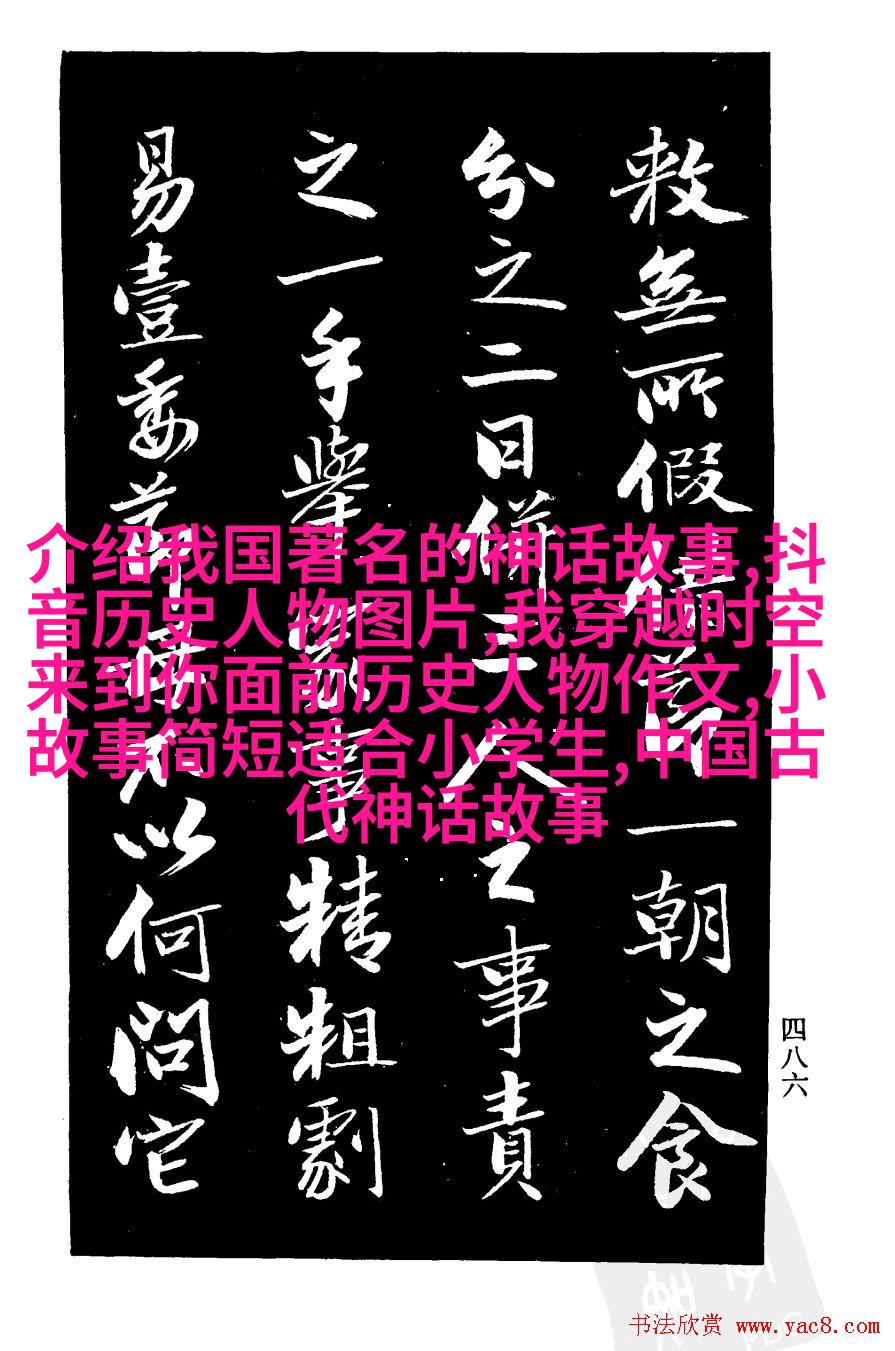 敕無所假借一朝之食
分之二日併三人之事責
之一手舉事精粗劇
易壹委以何問它
介绍我国著名的神话故事,抖
音历史人物图片,我穿越时空
来到你面前历史人物作文,小
故事简短适合小学生,中国古
代神话故事
四八六
书法欣赏 www.yac8.com